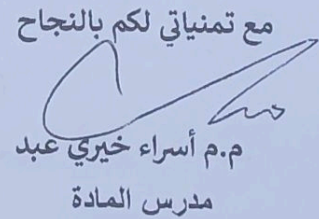 مع تمنياتي لكم بالنجاح
م.م أسراء خيري عبد
مدرس المادة